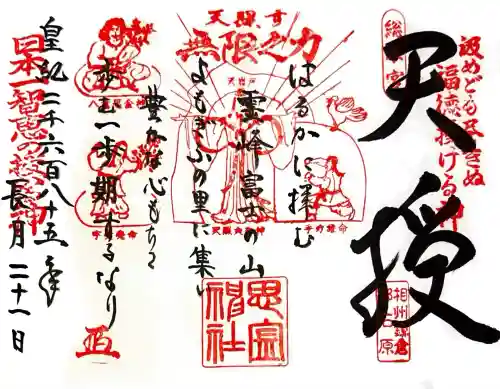 汲めども尽きぬ
福徳を授ける神
総本宮
天授
相州鎌倉
天照す
無限之力
はるかに拝む
霊峰富士の山
よもぎふの里に集い
豊かな心もちて
歩一歩期するなり
天岩戸
天照大御神
手力雄命
思金神社
八意思金神
皇紀二千六百八十五年
長月二十一日
日本一智恵の授け神